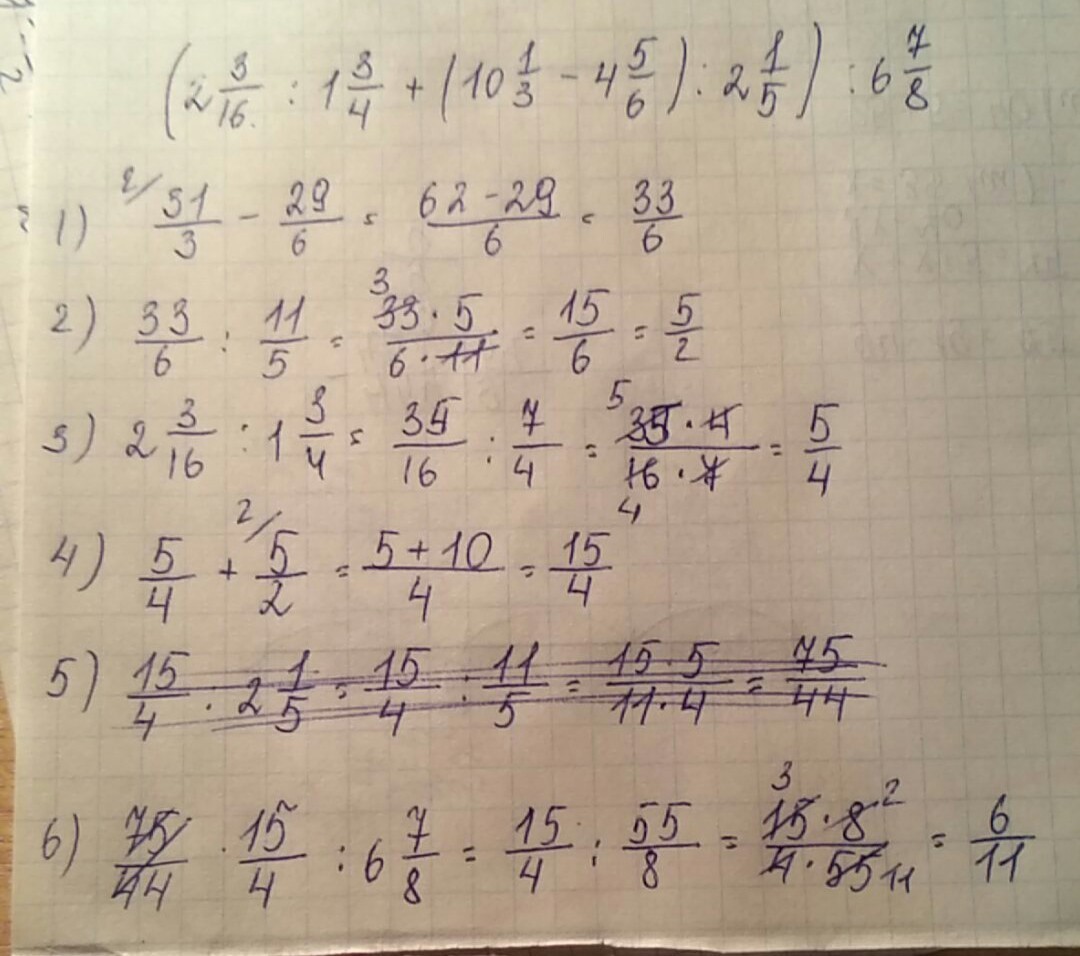 (2 3/16 : 1 3/4 + (10 1/3 - 4 5/6) : 2 1/5) : 6 7/8
1) 2/ 31/3 - 29/6 = (62 - 29)/6 = 33/6
2) 33/6 : 11/5 = 3 (33 · 5)/(6 · 11) = 15/6 = 5/2
3) 2 3/16 : 1 3/4 = 35/16 : 7/4 = 5 (35 · 4)/(16 · 7) 4 = 5/4
4) 5/4 + 2/ 5/2 = (5 + 10)/4 = 15/4
5) 15/4 : 2 1/5 = 15/4 : 11/5 = (15 · 5)/(11 · 4) = 75/44
6) 75/44 · 15/4 : 6 7/8 = 15/4 : 55/8 = 3 (15 · 8 2)/(4 · 55 11) = 6/11